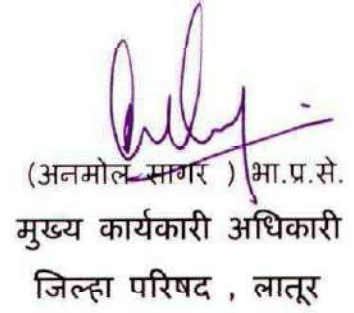 (अनमोल सागर ) भा.प्र.से.
मुख्य कार्यकारी अधिकारी
जिल्हा परिषद , लातूर